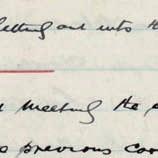 letting out into th
meeting the
previous